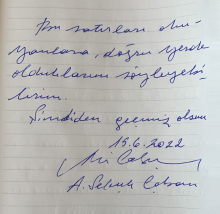 Bu satırları oku-
yanlara, doğru yerde
olduklarını söyleyebi-
lirim.
Şimdiden geçmiş olsun
15.6.2022
A. Selçuk